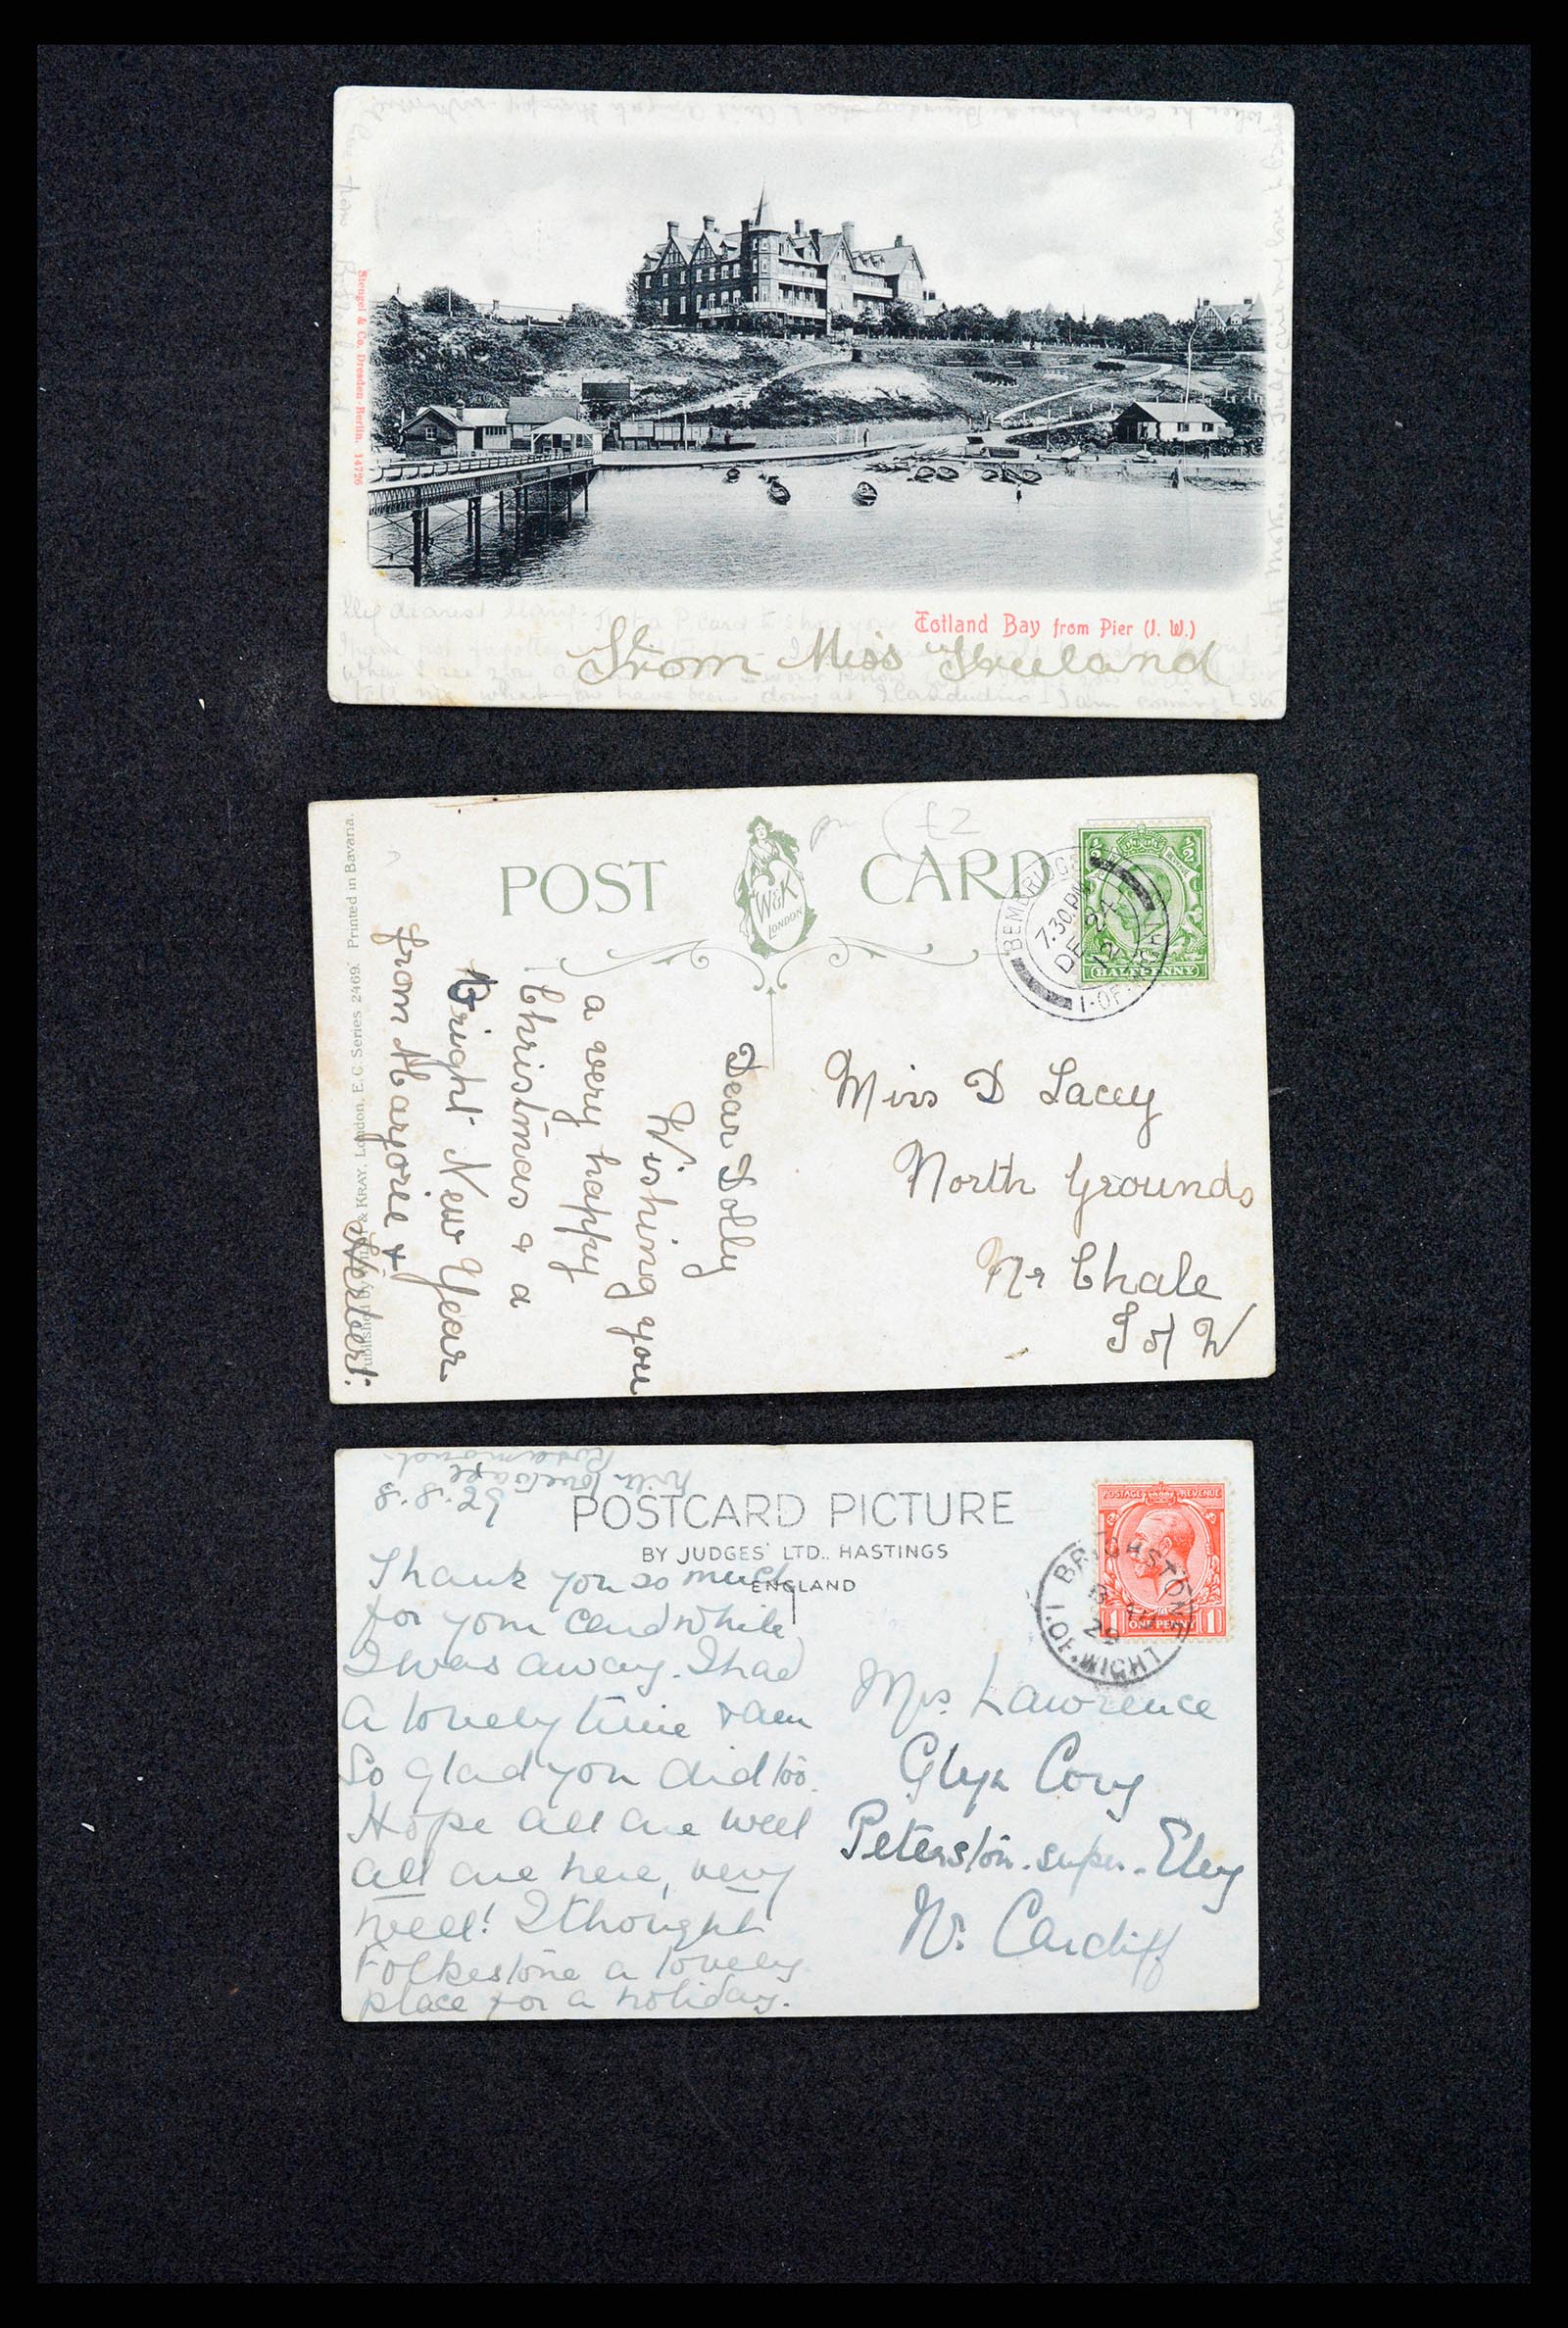 Stengel & Co., Dresden-Berlin. 14726
Totland Bay from Pier (I. W.)
My dearest
P. card to show you
From Miss Freeland
when I see you
tell me what you have been doing at Llandudno - I am coming to
POST CARD
W&K
LONDON
£2
½ ½
HALFPENNY
BEMBRIDGE
7.30 PM
DE 24
12
I. OF. WIGHT
Miss D Lacey
North Grounds
Nr Chale
I of W
Dear Dolly
Wishing you
a very happy
Christmas & a
Bright New Year
from Marjorie &
Published by & KRAY, London, E.C. Series 2469. Printed in Bavaria.
With love to all
Rosamond.
8.8.29
POSTCARD PICTURE
BY JUDGES' LTD., HASTINGS
ENGLAND
POSTAGE REVENUE
1 ONE PENNY 1
BRIGHSTONE
8 AU
29
I. OF. WIGHT
Thank you so much
for your card while
I was away. I had
a lovely time & am
So glad you did too.
Hope all are well
all are here, very
well! I thought
Folkestone a lovely
place for a holiday.
Mrs. Lawrence
Glyn Cory
Peterston-super-Ely
Nr. Cardiff